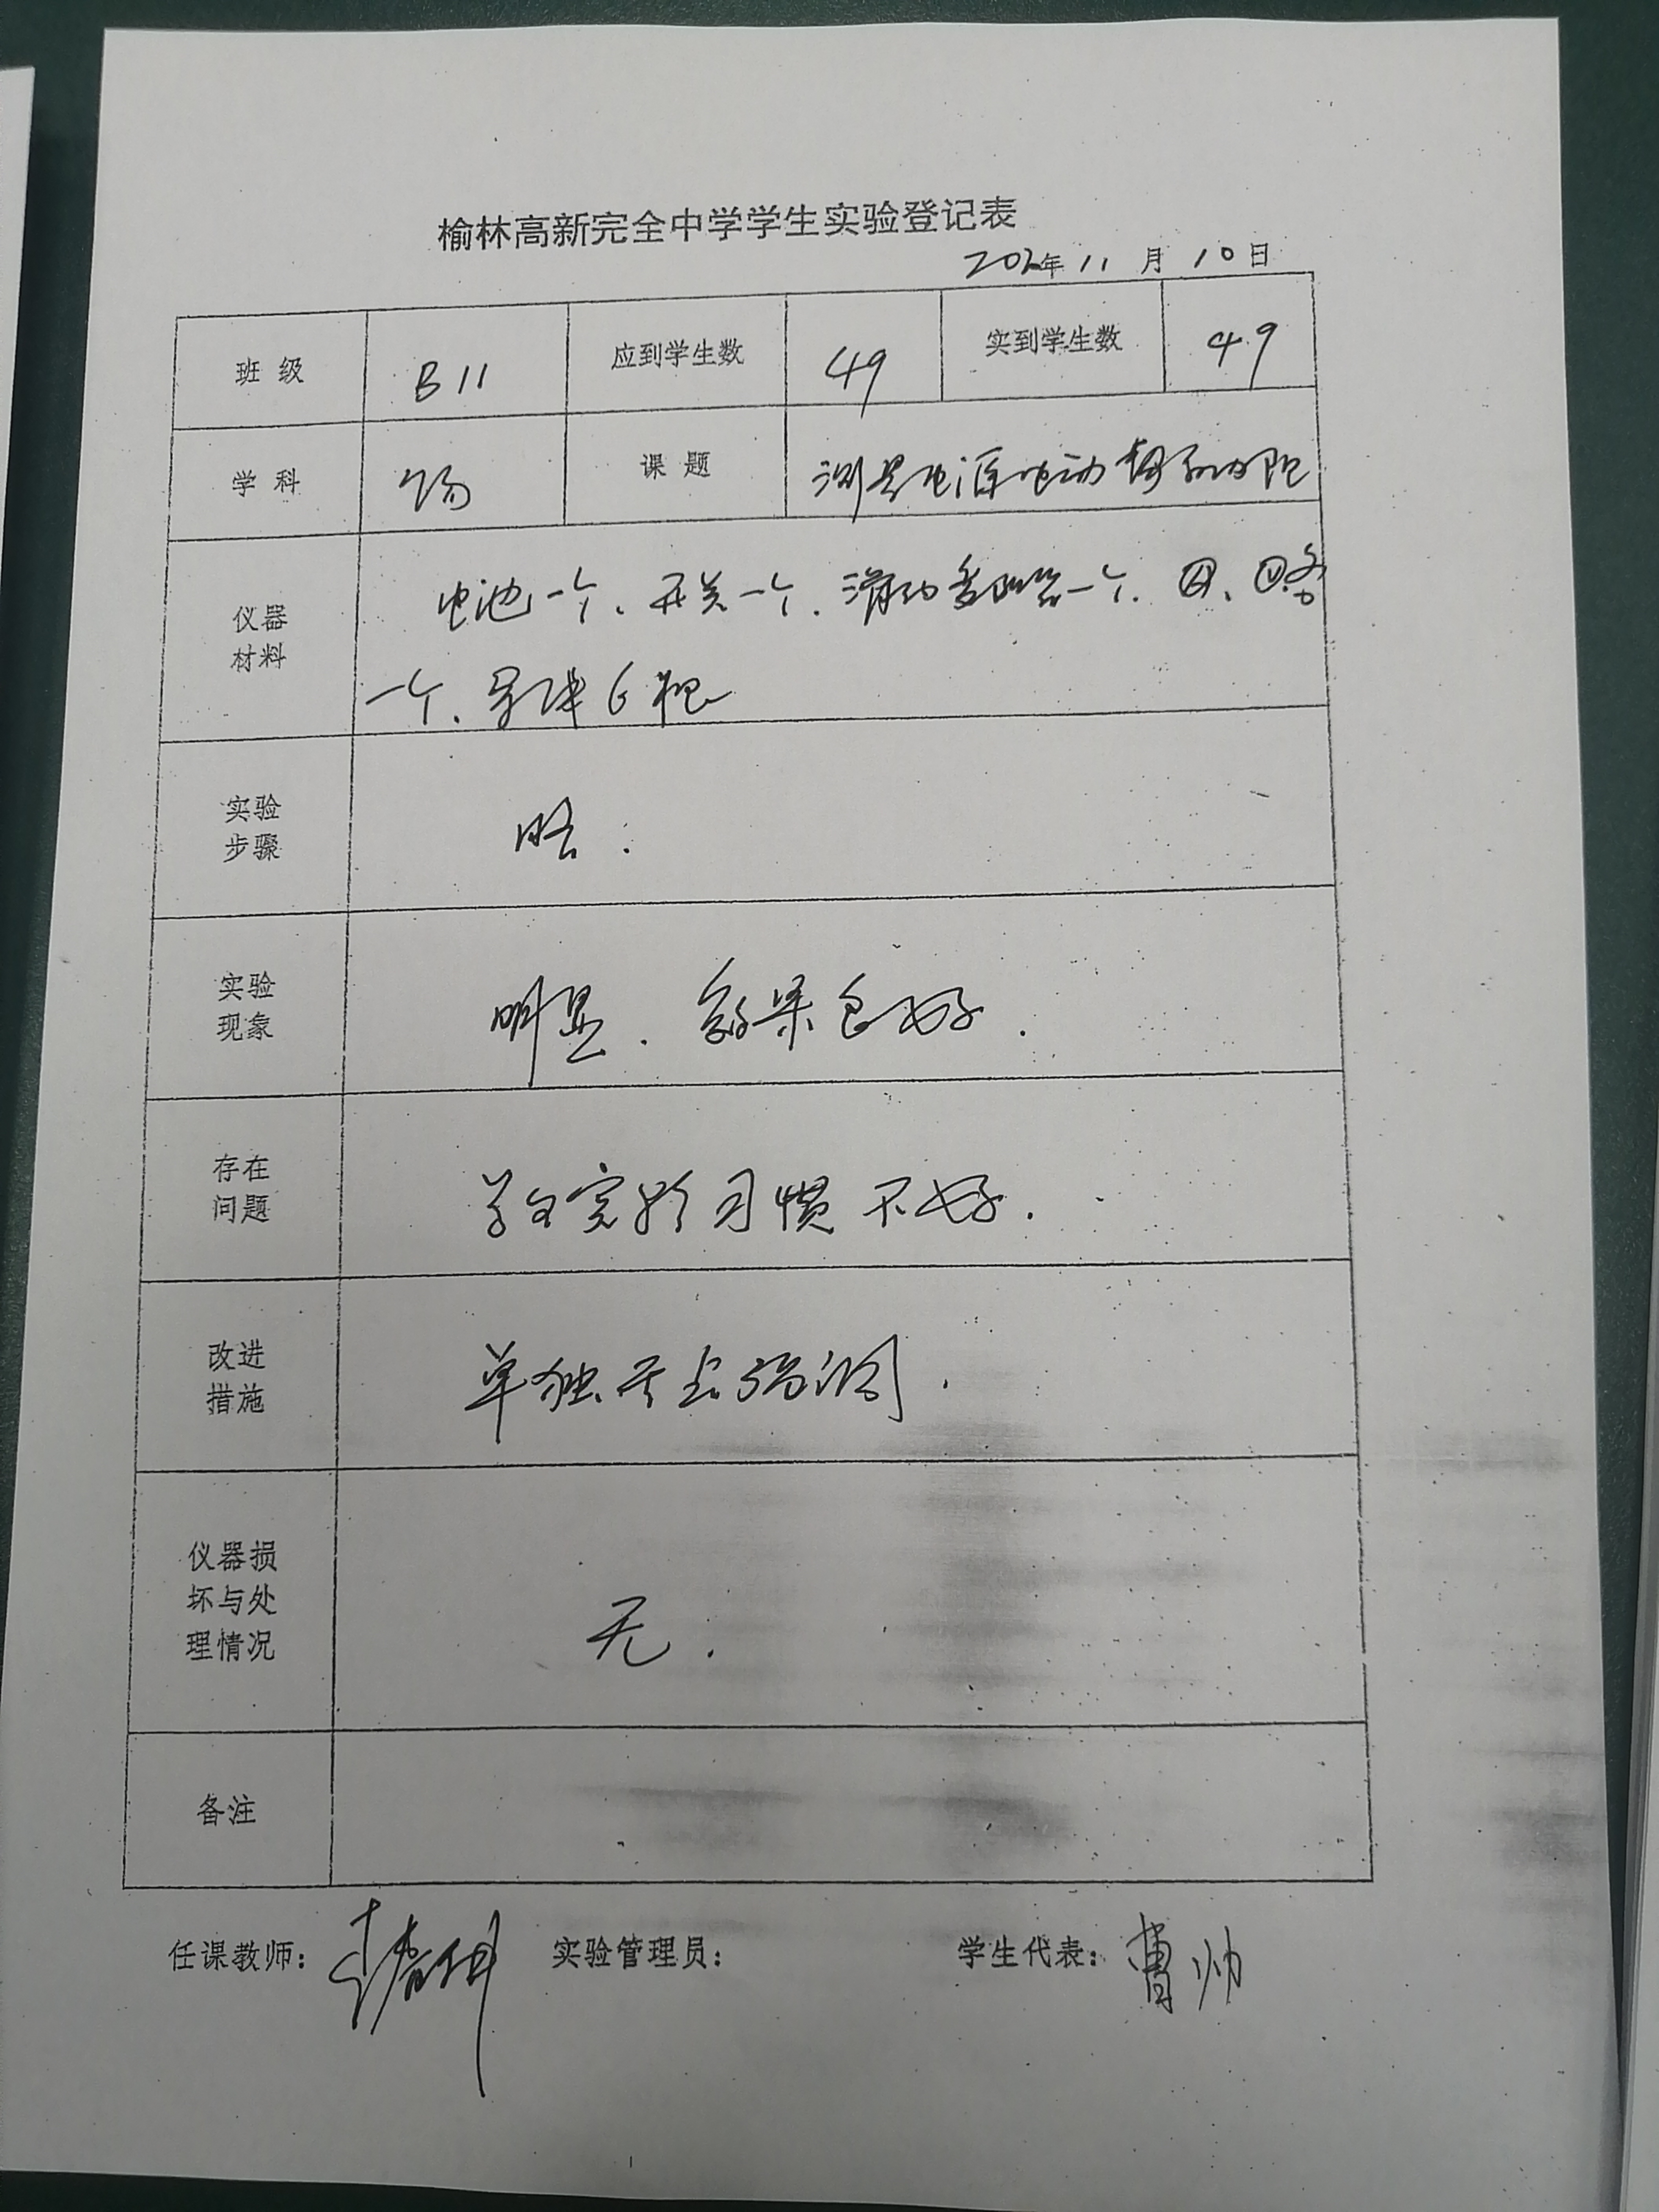 榆林高新完全中学学生实验登记表
年 11 月 10 日
班 级 B11 应到学生数 49 实到学生数 49
学 科 物 课 题 测量电源电动势和内阻
仪器
材料
电池一个、开关一个、滑动变阻器一个、Ⓐ、Ⓥ各
一个、导体6根
实验
步骤
略:
实验
现象
明显. 效果良好.
存在
问题
学生实验习惯不好.
改进
措施
单独关上强调.
仪器损
坏与处
理情况
无.
备注
任课教师: 实验管理员: 学生代表: 曹帅